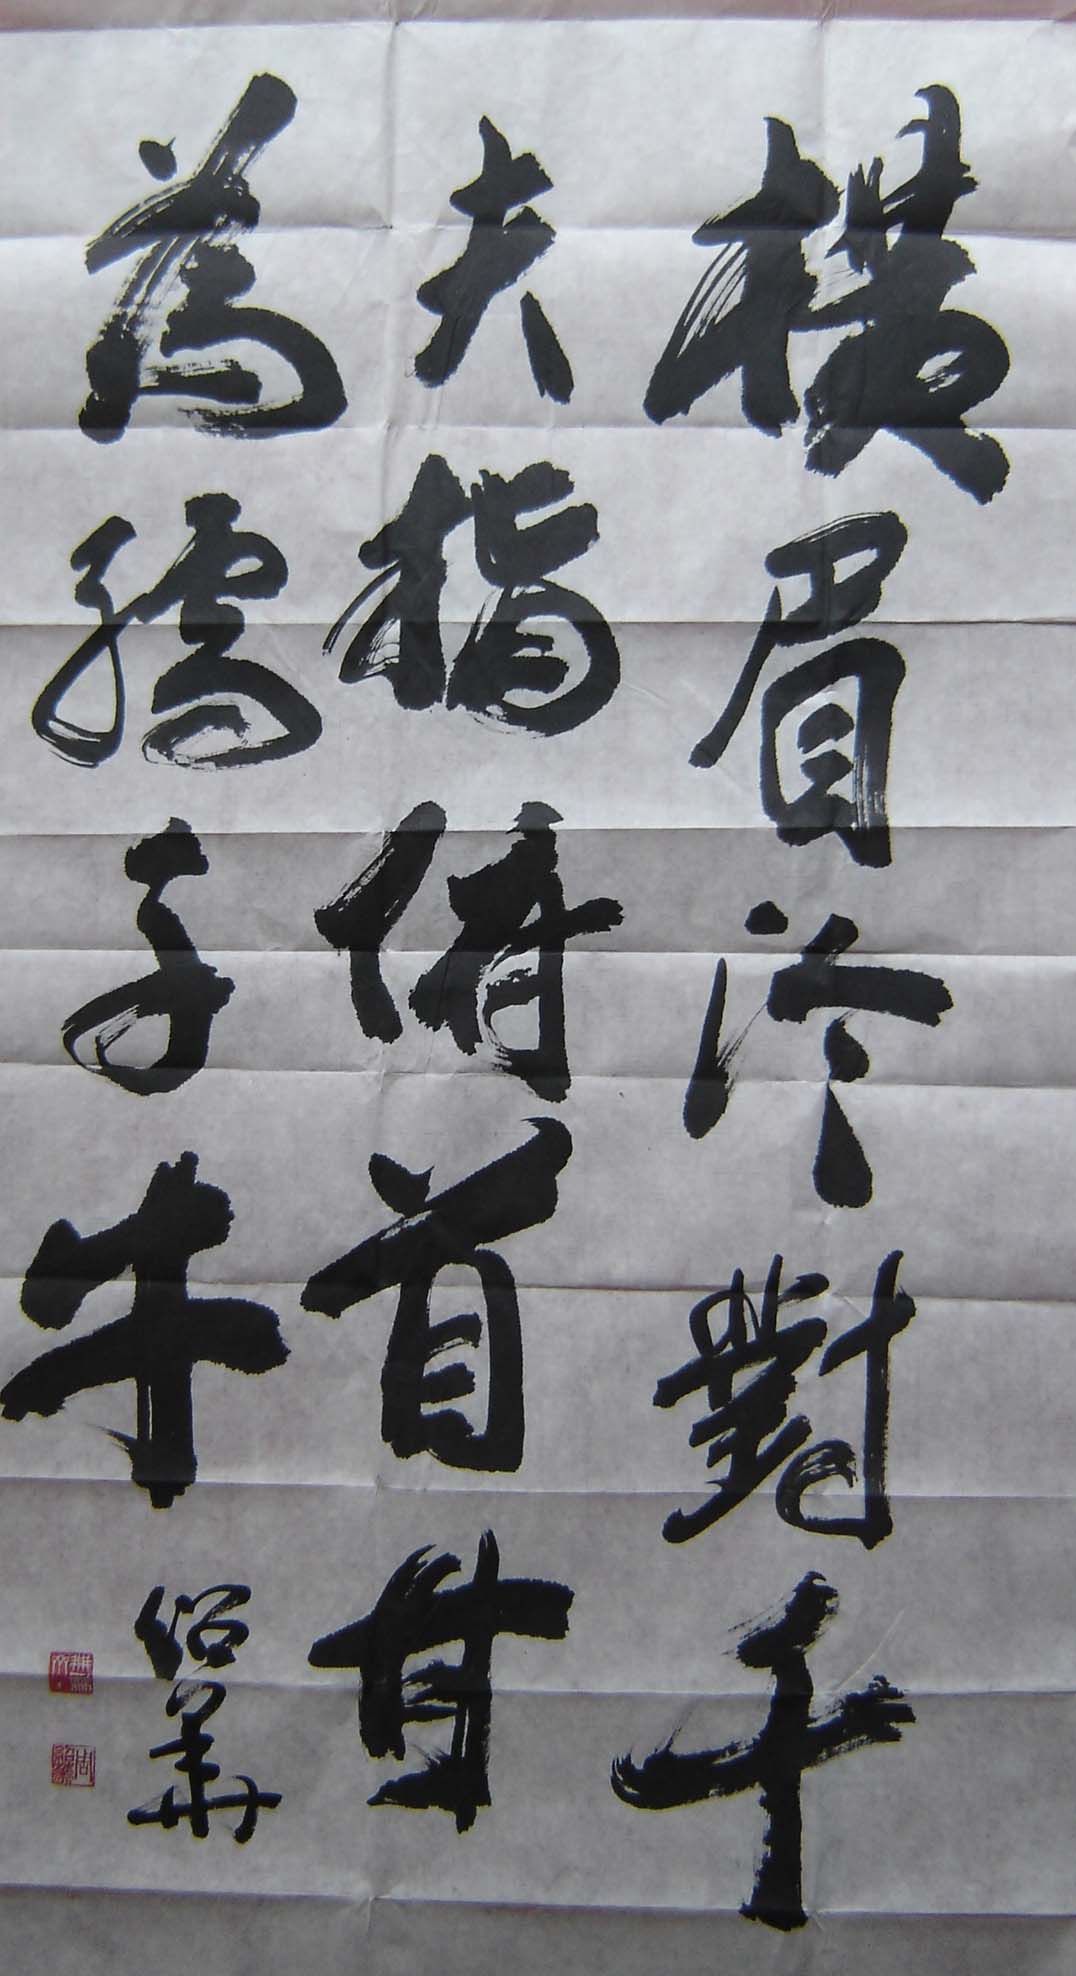 橫眉冷對千
夫指俯首甘
為孺子牛
紹華